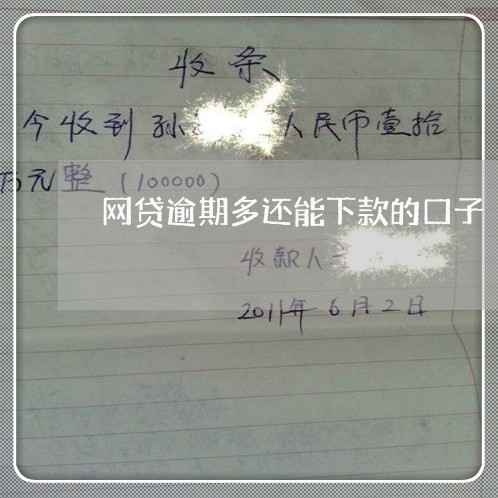 收条
今收到孙人民币壹拾
万元整(100000)
网贷逾期多还能下款的口子
收款人
2011年6月2日